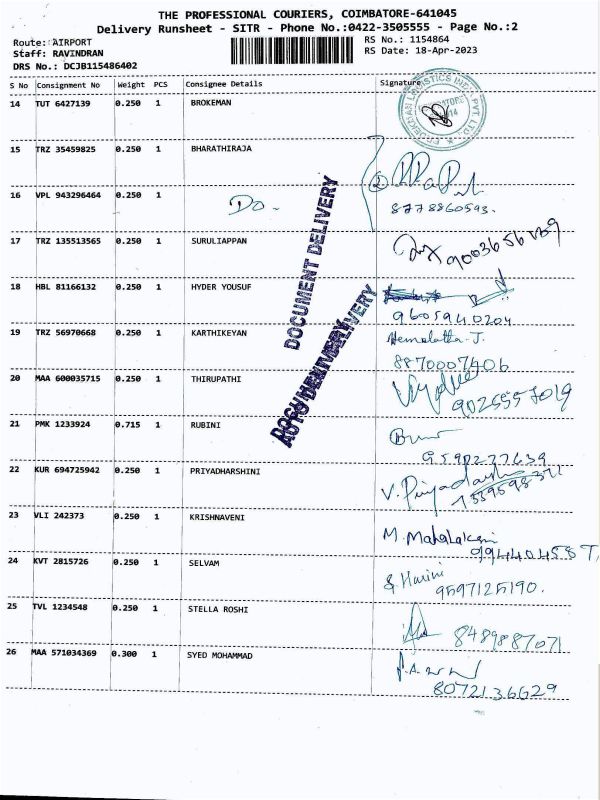 THE PROFESSIONAL COURIERS, COIMBATORE-641045
Delivery Runsheet - SITR - Phone No.:0422-3505555 - Page No.:2
Route: AIRPORT
Staff: RAVINDRAN
DRS No.: DCJB115486402
RS No.: 1154864
RS Date: 18-Apr-2023
S No Consignment No Weight PCS Consignee Details Signature
14 TUT 6427139 0.250 1 BROKEMAN
15 TRZ 35459825 0.250 1 BHARATHIRAJA
16 VPL 943296464 0.250 1 Do. 8778860593.
17 TRZ 135513565 0.250 1 SURULIAPPAN
18 HBL 81166132 0.250 1 HYDER YOUSUF 9605940204
19 TRZ 56970668 0.250 1 KARTHIKEYAN Hemalatha J.
8870007406
20 MAA 600035715 0.250 1 THIRUPATHI
21 PMK 1233924 0.715 1 RUBINI
9590277639
22 KUR 694725942 0.250 1 PRIYADHARSHINI V. Priyadarshi
23 VLI 242373 0.250 1 KRISHNAVENI M. Mahalakshmi
24 KVT 2815726 0.250 1 SELVAM S Harini
9597125190.
25 TVL 1234548 0.250 1 STELLA ROSHI
8489887071
26 MAA 571034369 0.300 1 SYED MOHAMMAD
8072136629
DOCUMENT DELIVERY
DOCUMENT DELIVERY
AUTO DELIVERY